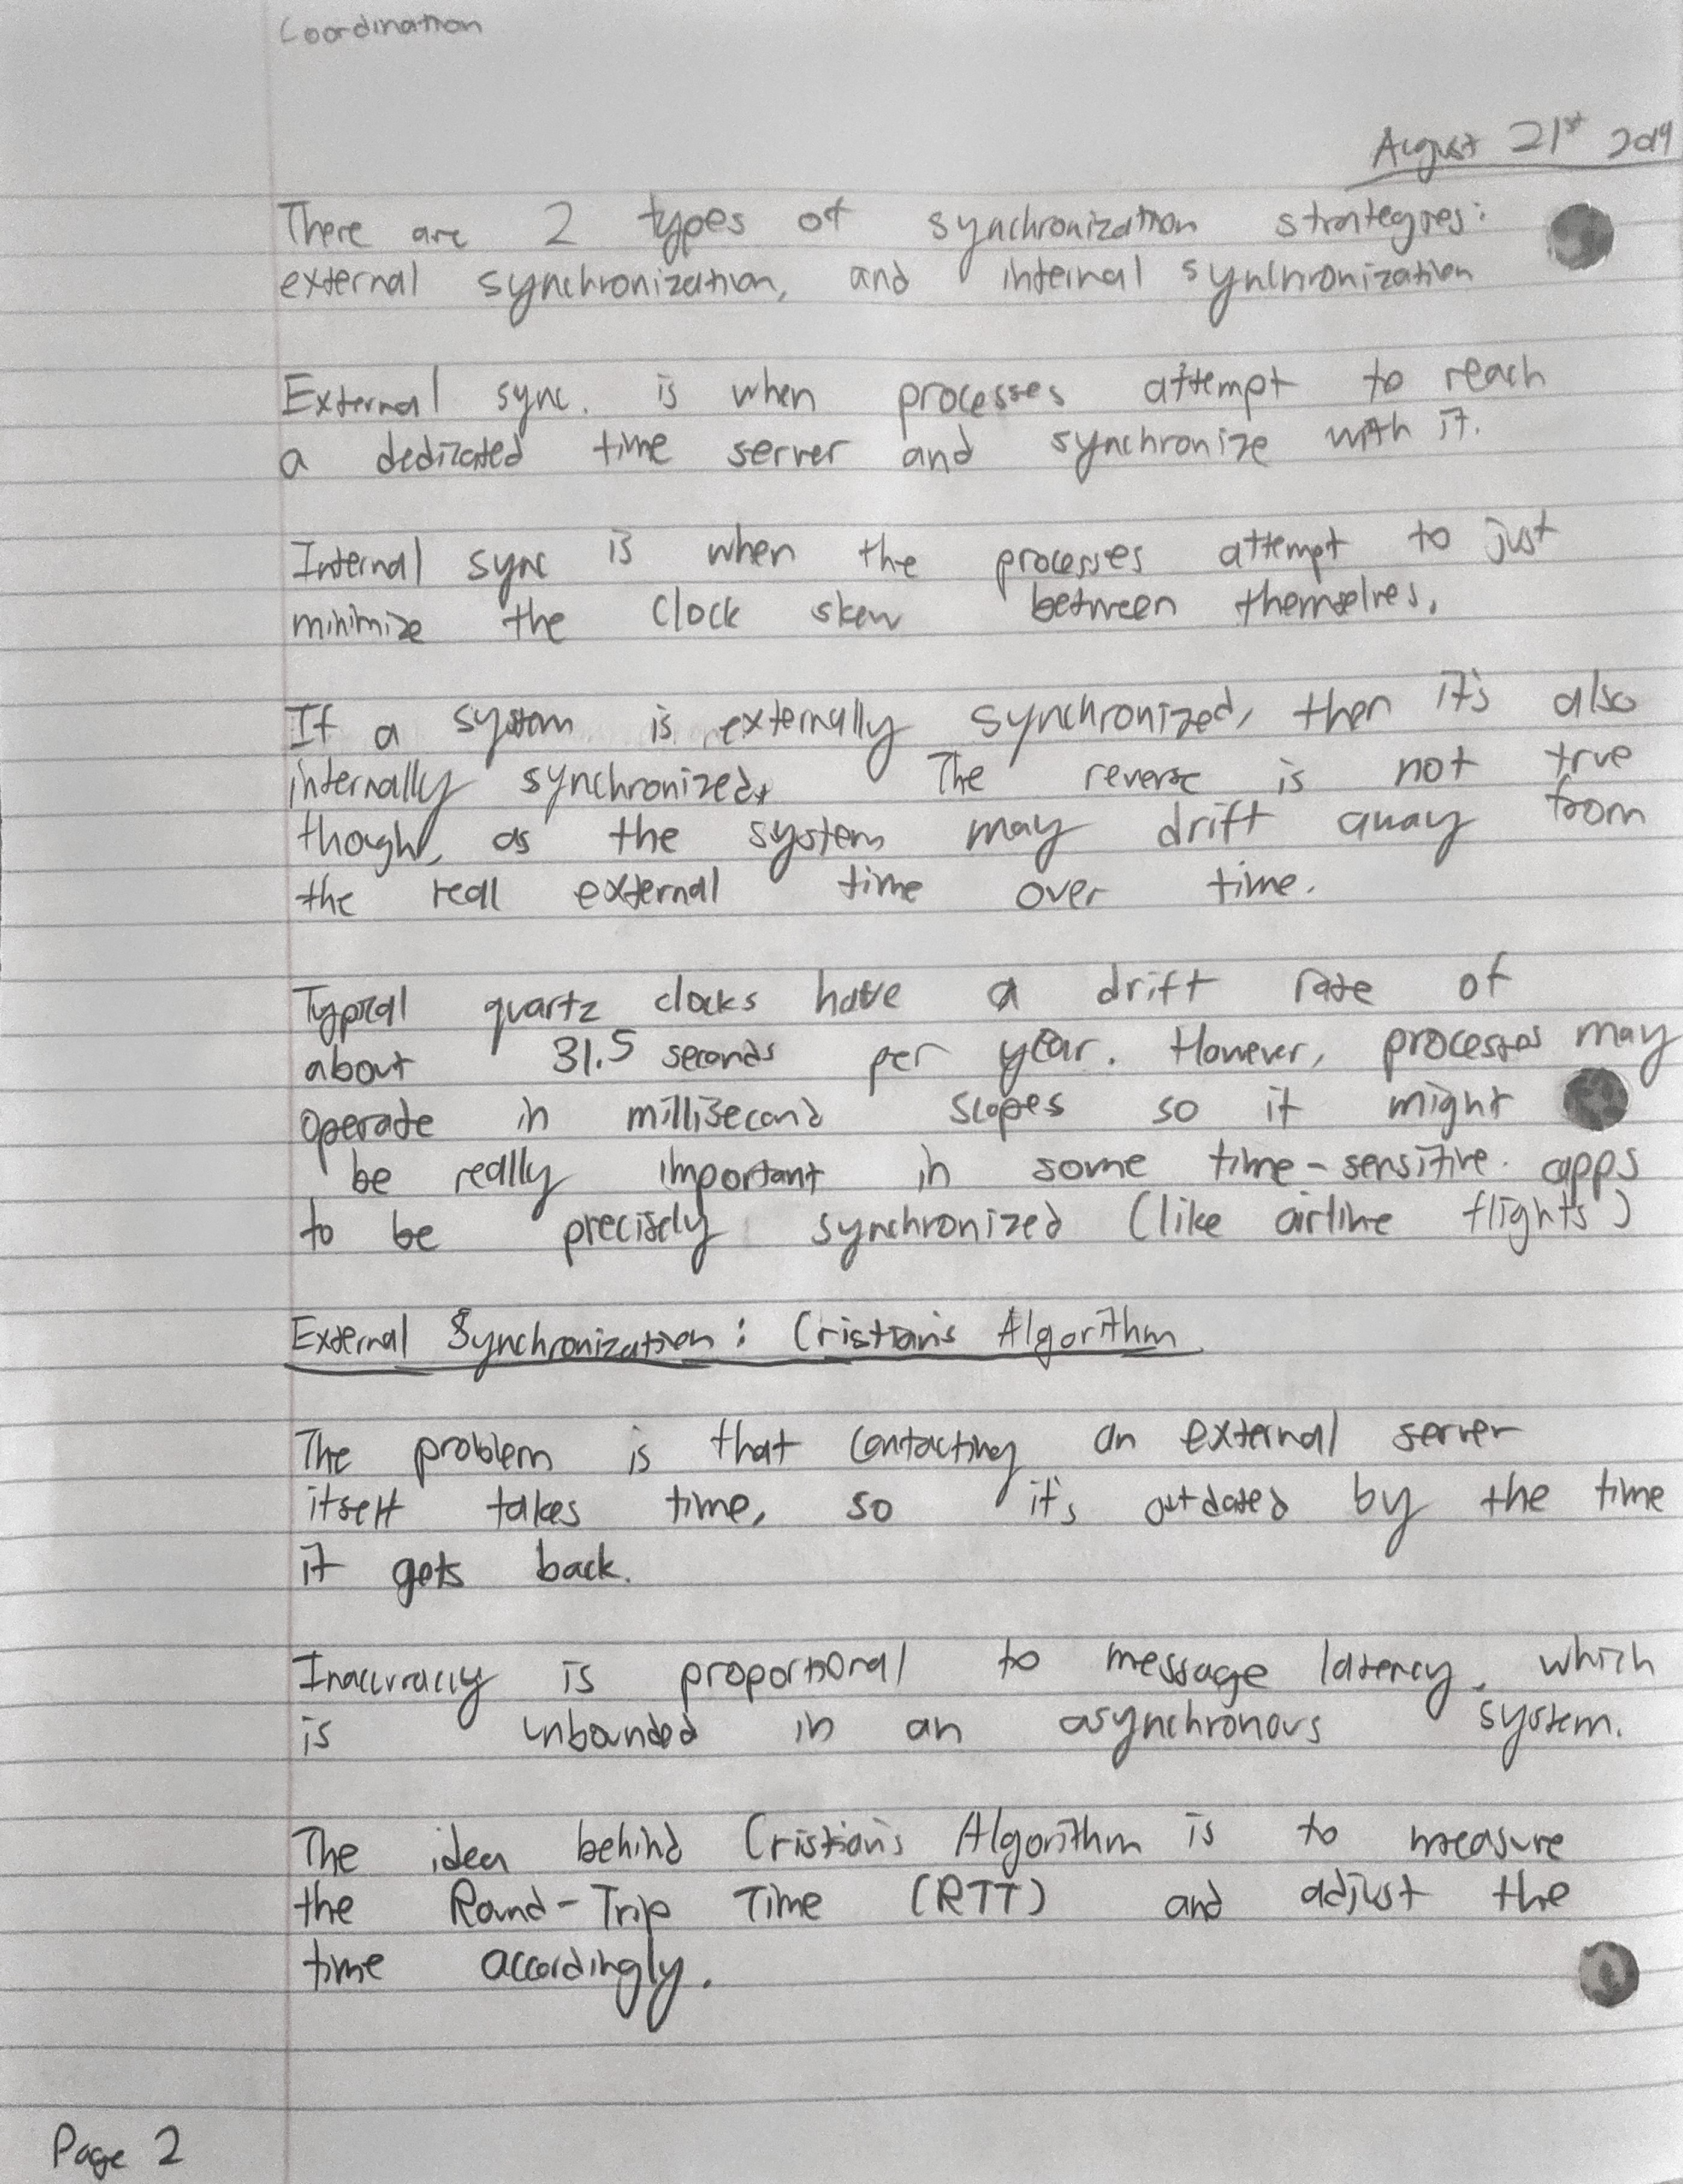 Coordination
August 21st 2019
There are 2 types of synchronization strategies:
external synchronization, and internal synchronization
External sync. is when processes attempt to reach
a dedicated time server and synchronize with it.
Internal sync is when the processes attempt to just
minimize the clock skew between themselves.
If a system is externally synchronized, then it's also
internally synchronized. The reverse is not true
though, as the system may drift away from
the real external time over time.
Typical quartz clocks have a drift rate of
about 31.5 seconds per year. However, processes may
operate in millisecond scopes so it might
be really important in some time-sensitive apps
to be precisely synchronized (like airline flights)
External Synchronization: Cristian's Algorithm
The problem is that contacting an external server
itself takes time, so it's outdated by the time
it gets back.
Inaccuracy is proportional to message latency, which
is unbounded in an asynchronous system.
The idea behind Cristian's Algorithm is to measure
the Round-Trip Time (RTT) and adjust the
time accordingly.
Page 2